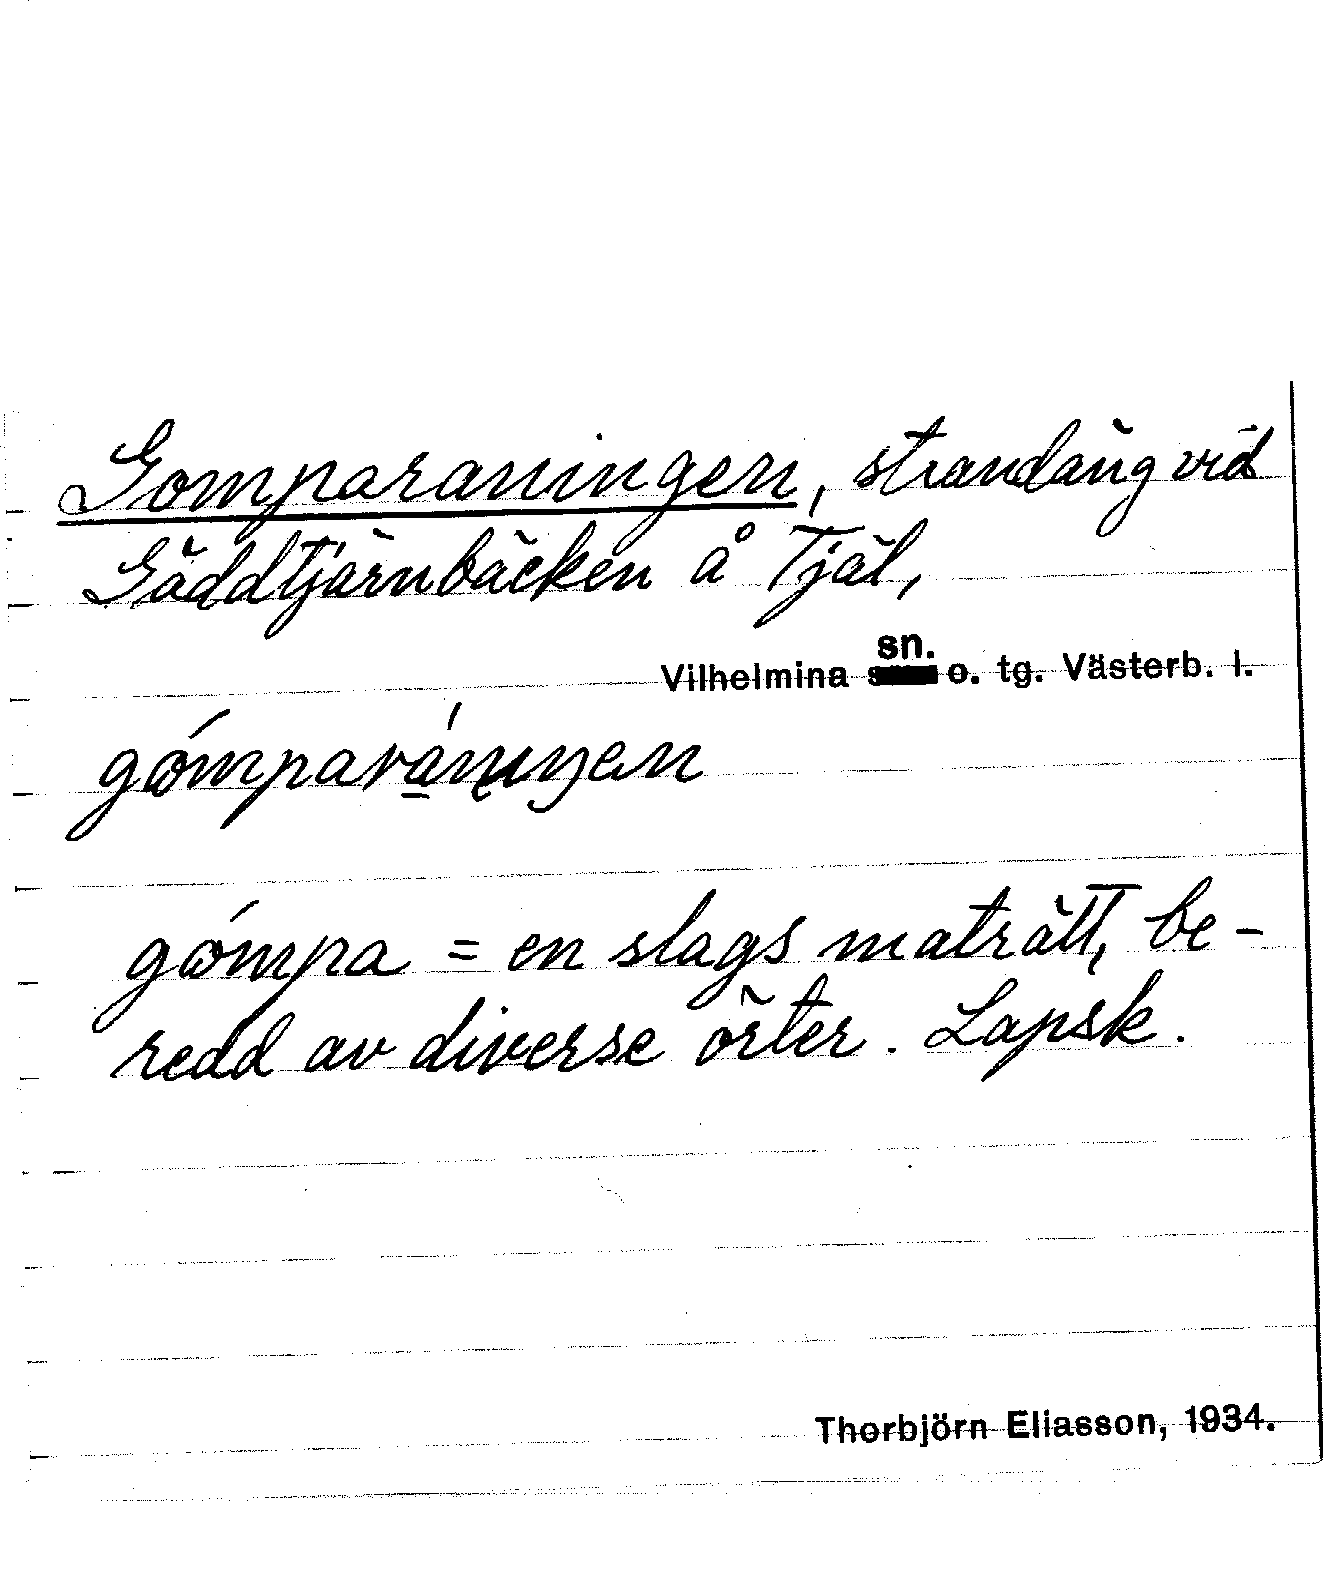 Gomparaningen, strandäng vid
Gäddtjärnbäcken å Tjäl,
sn.
Vilhelmina o. tg. Västerb. l.
gómparániŋen
gómpa = en slags maträtt, be-
redd av diverse örter. Lapsk.
Thorbjörn Eliasson, 1934.